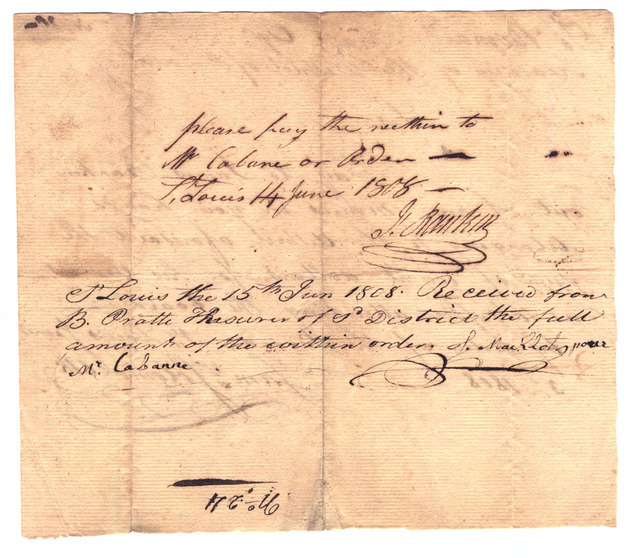 please pay the within to
Mr Cabane or Order
St Louis 4 June 1808
J. Rankin
St Louis the 15th Jun 1808. Received from
B. Pratte Treasurer of Sd District the full
amount of the within order.
pour
Mr. Cabanne.